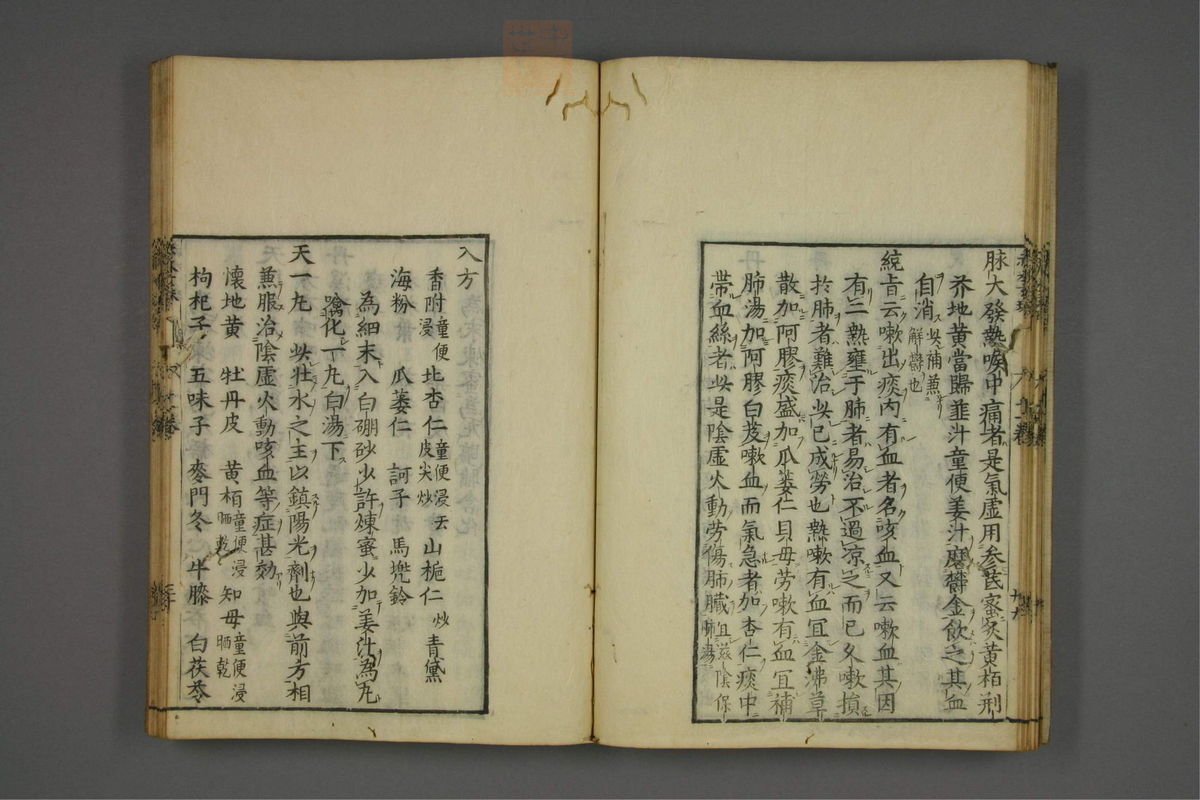 脉大發熱喉中痛者是氣虛用参芪蜜炙黄栢荊
芥地黄當歸韮汁童便姜汁磨欝金飲之其血
自消此補兼解欝也
統旨云嗽出痰内有血者名咳血又云嗽血其因
有二熱壅于肺者易治不過凉之而已久嗽損
於肺者難治此已成勞也熱嗽有血宜金沸草
散加阿膠痰盛加瓜蔞仁貝母勞嗽有血宜補
肺湯加阿膠白芨嗽血而氣急者加杏仁痰中
帶血絲者此是陰虛火動勞傷肺臓宜滋陰保肺湯
入方
香附童便浸 北杏仁童便浸去皮尖炒 山梔仁炒 青黛
海粉 瓜蔞仁 訶子 馬兠鈴
為細末入白硼砂少許煉蜜少加姜汁為丸
噙化一丸白湯下
天一丸 此壮水之主以鎮陽光劑也與前方相
兼服治陰虛火動咳血等症甚効
懐地黄 牡丹皮 黄栢童便浸晒乾 知母童便浸晒乾
枸杞子 五味子 麥門冬 牛膝 白茯苓